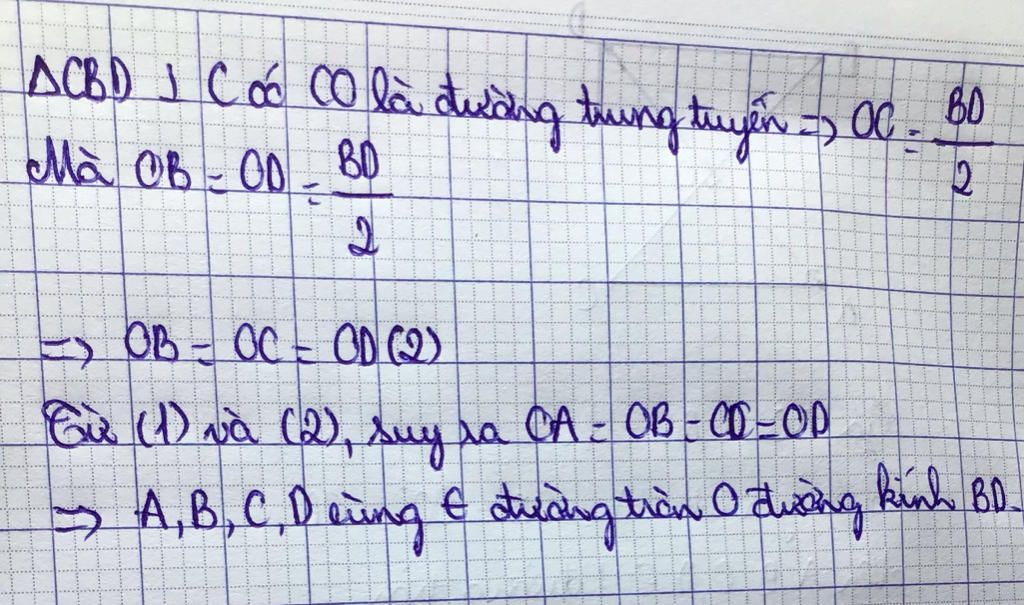 ΔCBD ⊥ C có CO là đường trung tuyến => OC = BD/2
Mà OB = OD = BD/2
=> OB = OC = OD (2)
Từ (1) và (2), suy ra OA = OB = OC = OD
=> A, B, C, D cùng ∈ đường tròn O đường kính BD.